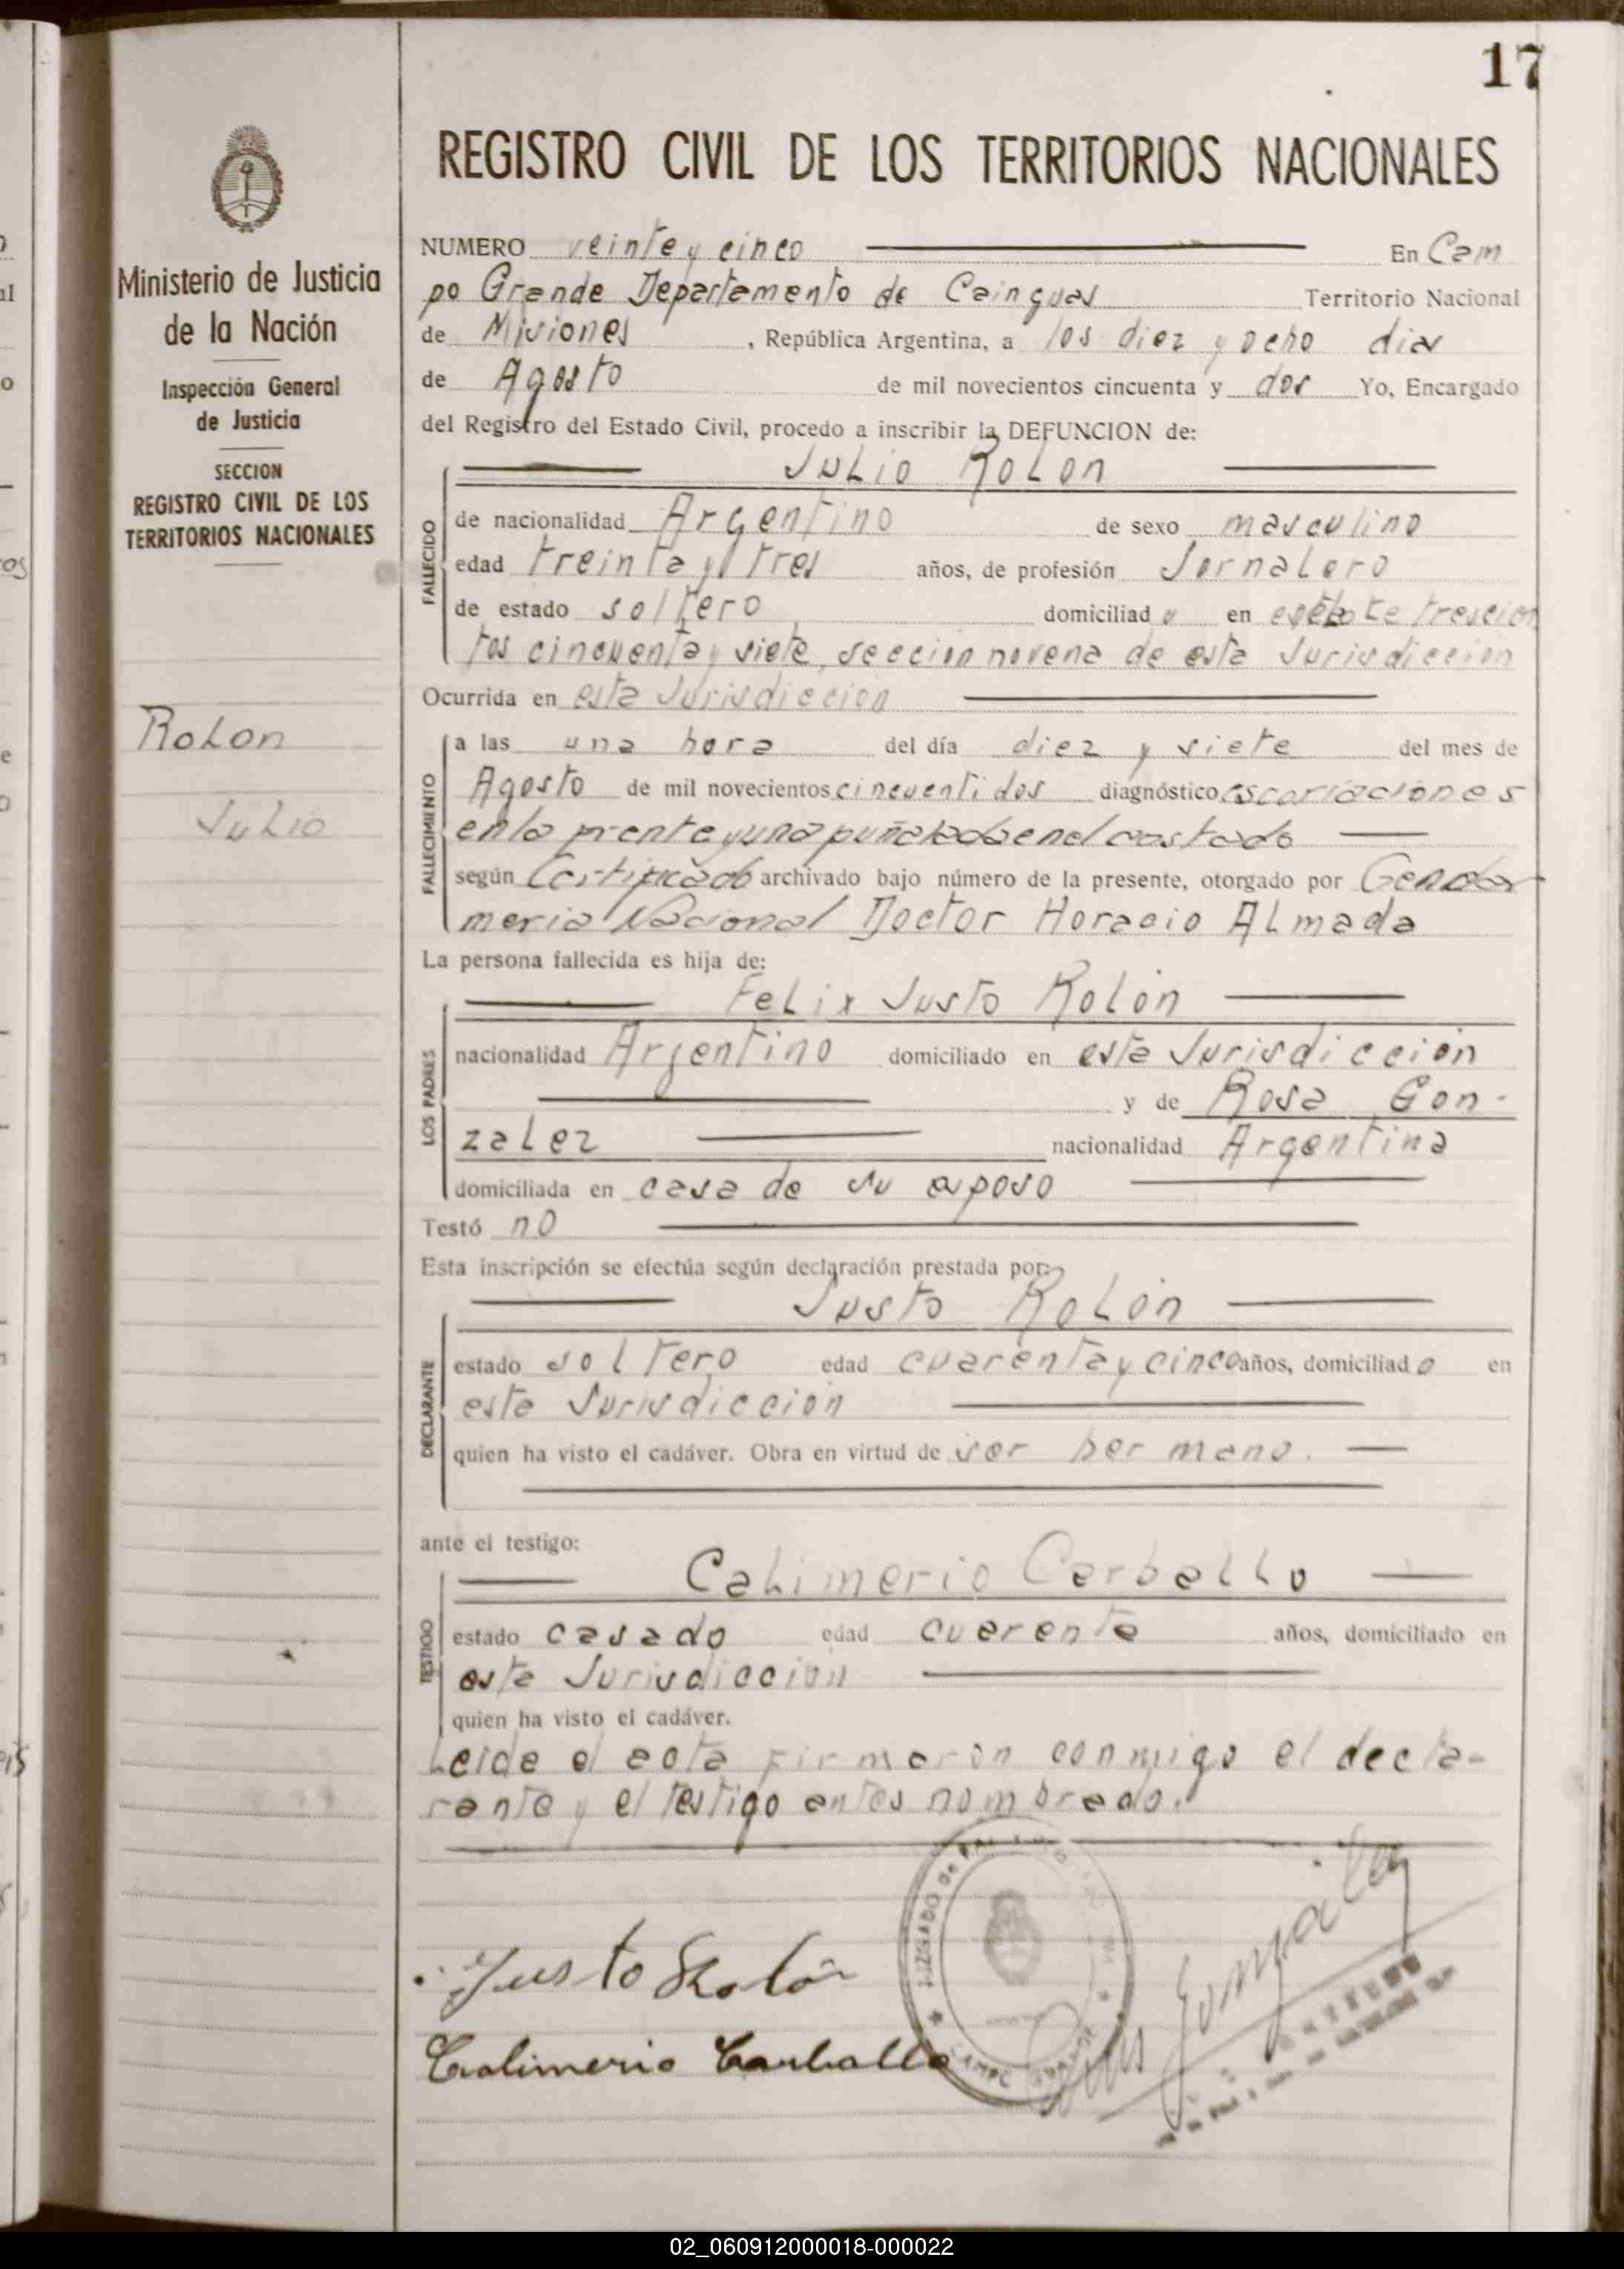 17
REGISTRO CIVIL DE LOS TERRITORIOS NACIONALES
Ministerio de Justicia
de la Nación
Inspección General
de Justicia
SECCION
REGISTRO CIVIL DE LOS
TERRITORIOS NACIONALES
Rolon
Julio
NUMERO veinte y cinco En Cam
po Grande Departamento de Cainguas Territorio Nacional
de Misiones, República Argentina, a los diez y ocho dias
de Agosto de mil novecientos cincuenta y dos Yo, Encargado
del Registro del Estado Civil, procedo a inscribir la DEFUNCION de:
Julio Rolon
FALLECIDO
de nacionalidad Argentino de sexo masculino
edad treinta y tres años, de profesión Jornalero
de estado soltero domiciliado en lote trescien
tos cincuenta y siete, seccion novena de esta Jurisdiccion
Ocurrida en esta Jurisdiccion
FALLECIMIENTO
a las una hora del día diez y siete del mes de
Agosto de mil novecientos cincuentidos diagnóstico escoriaciones
en la frente y una puñalada en el costado
según Certificado archivado bajo número de la presente, otorgado por Gendar
meria Nacional Doctor Horacio Almada
La persona fallecida es hija de:
Felix Justo Rolón
LOS PADRES
nacionalidad Argentino domiciliado en esta Jurisdicción
y de Rosa Gon-
zalez nacionalidad Argentina
domiciliada en casa de su esposo
Testó no
Esta inscripción se efectúa según declaración prestada por:
Justo Rolón
DECLARANTE
estado soltero edad cuarenta y cinco años, domiciliado en
esta Jurisdicción
quien ha visto el cadáver. Obra en virtud de ser hermano.
ante el testigo:
Calimerio Carballo
TESTIGO
estado casado edad cuarenta años, domiciliado en
esta Jurisdiccion
quien ha visto el cadáver.
Leida el acta firmaron conmigo el decla-
rante y el testigo antes nombrado.
Justo Rolón
Calimerio Carballo
JUZGADO DE PAZ
CAMPO GRANDE
González
02_060912000018-000022